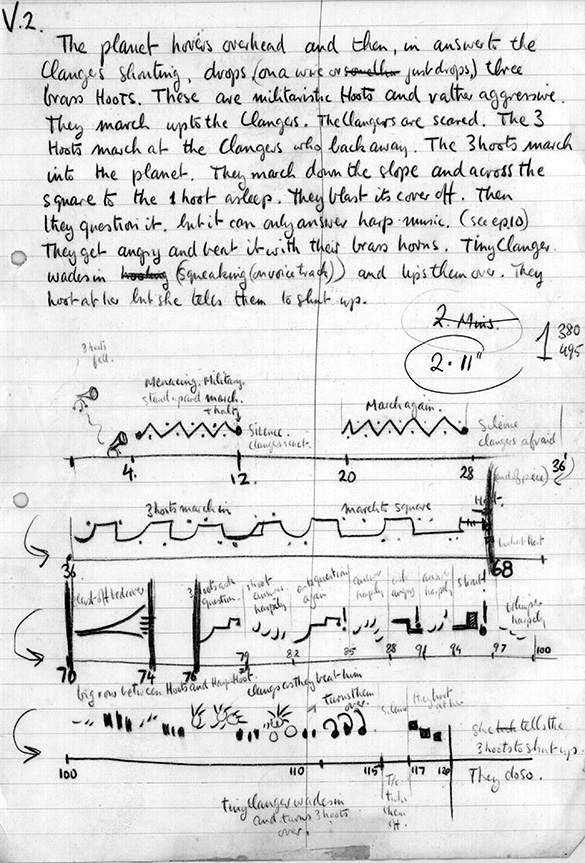 V.2.
The planet hovers overhead and then, in answer to the
Clangers shouting, drops (on a wire or just drops,) three
brass Hoots. These are militaristic Hoots and rather aggressive.
They march up to the Clangers. The Clangers are scared. The 3
Hoots march at the Clangers who back away. The 3 hoots march
into the planet. They march down the slope and across the
square to the 1 hoot asleep. They blast its cover off. Then
they question it. but it can only answer harp music. (see ep.10)
They get angry and beat it with their brass horns. Tiny Clanger
wades in (squeaking (on voice track)) and ups them over. They
hoot at her but she tells them to shut up.
2. Mins.
2. 11"
1 380
495
3 hoots
fall.
Menacing. Military.
stand up and march.
+ halt
Silence.
Clangers react.
March again.
Silence
clangers afraid
4. 12 20 28 36
(end of piece)
3 hoots march in
march to square
36 68
blast off bedcover
question
answer
harpily
question
again
answer
harpily
angry
answer
harpily
harpily
70 74 76 79 82 85 88 91 94 97 100
big row between Hoots and Harp Hoot.
clangs as they beat him
turns them
over.
Silence
they hoot
at her
she tells the
3 hoots to shut up.
They do so.
100 110 115 117 120
tiny Clanger wades in
and turns 3 hoots
over.
T/C
ticks
them
off.